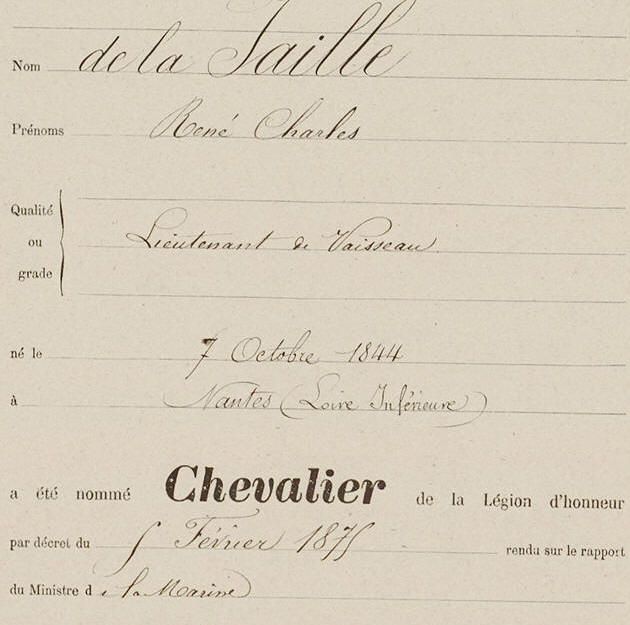 Nom de la Jaille
Prénoms René Charles
Qualité
ou Lieutenant de Vaisseau
grade
né le 7 Octobre 1844
à Nantes (Loire Inférieure)
a été nommé Chevalier de la Légion d'honneur
par décret du 5 Février 1875 rendu sur le rapport
du Ministre de la Marine